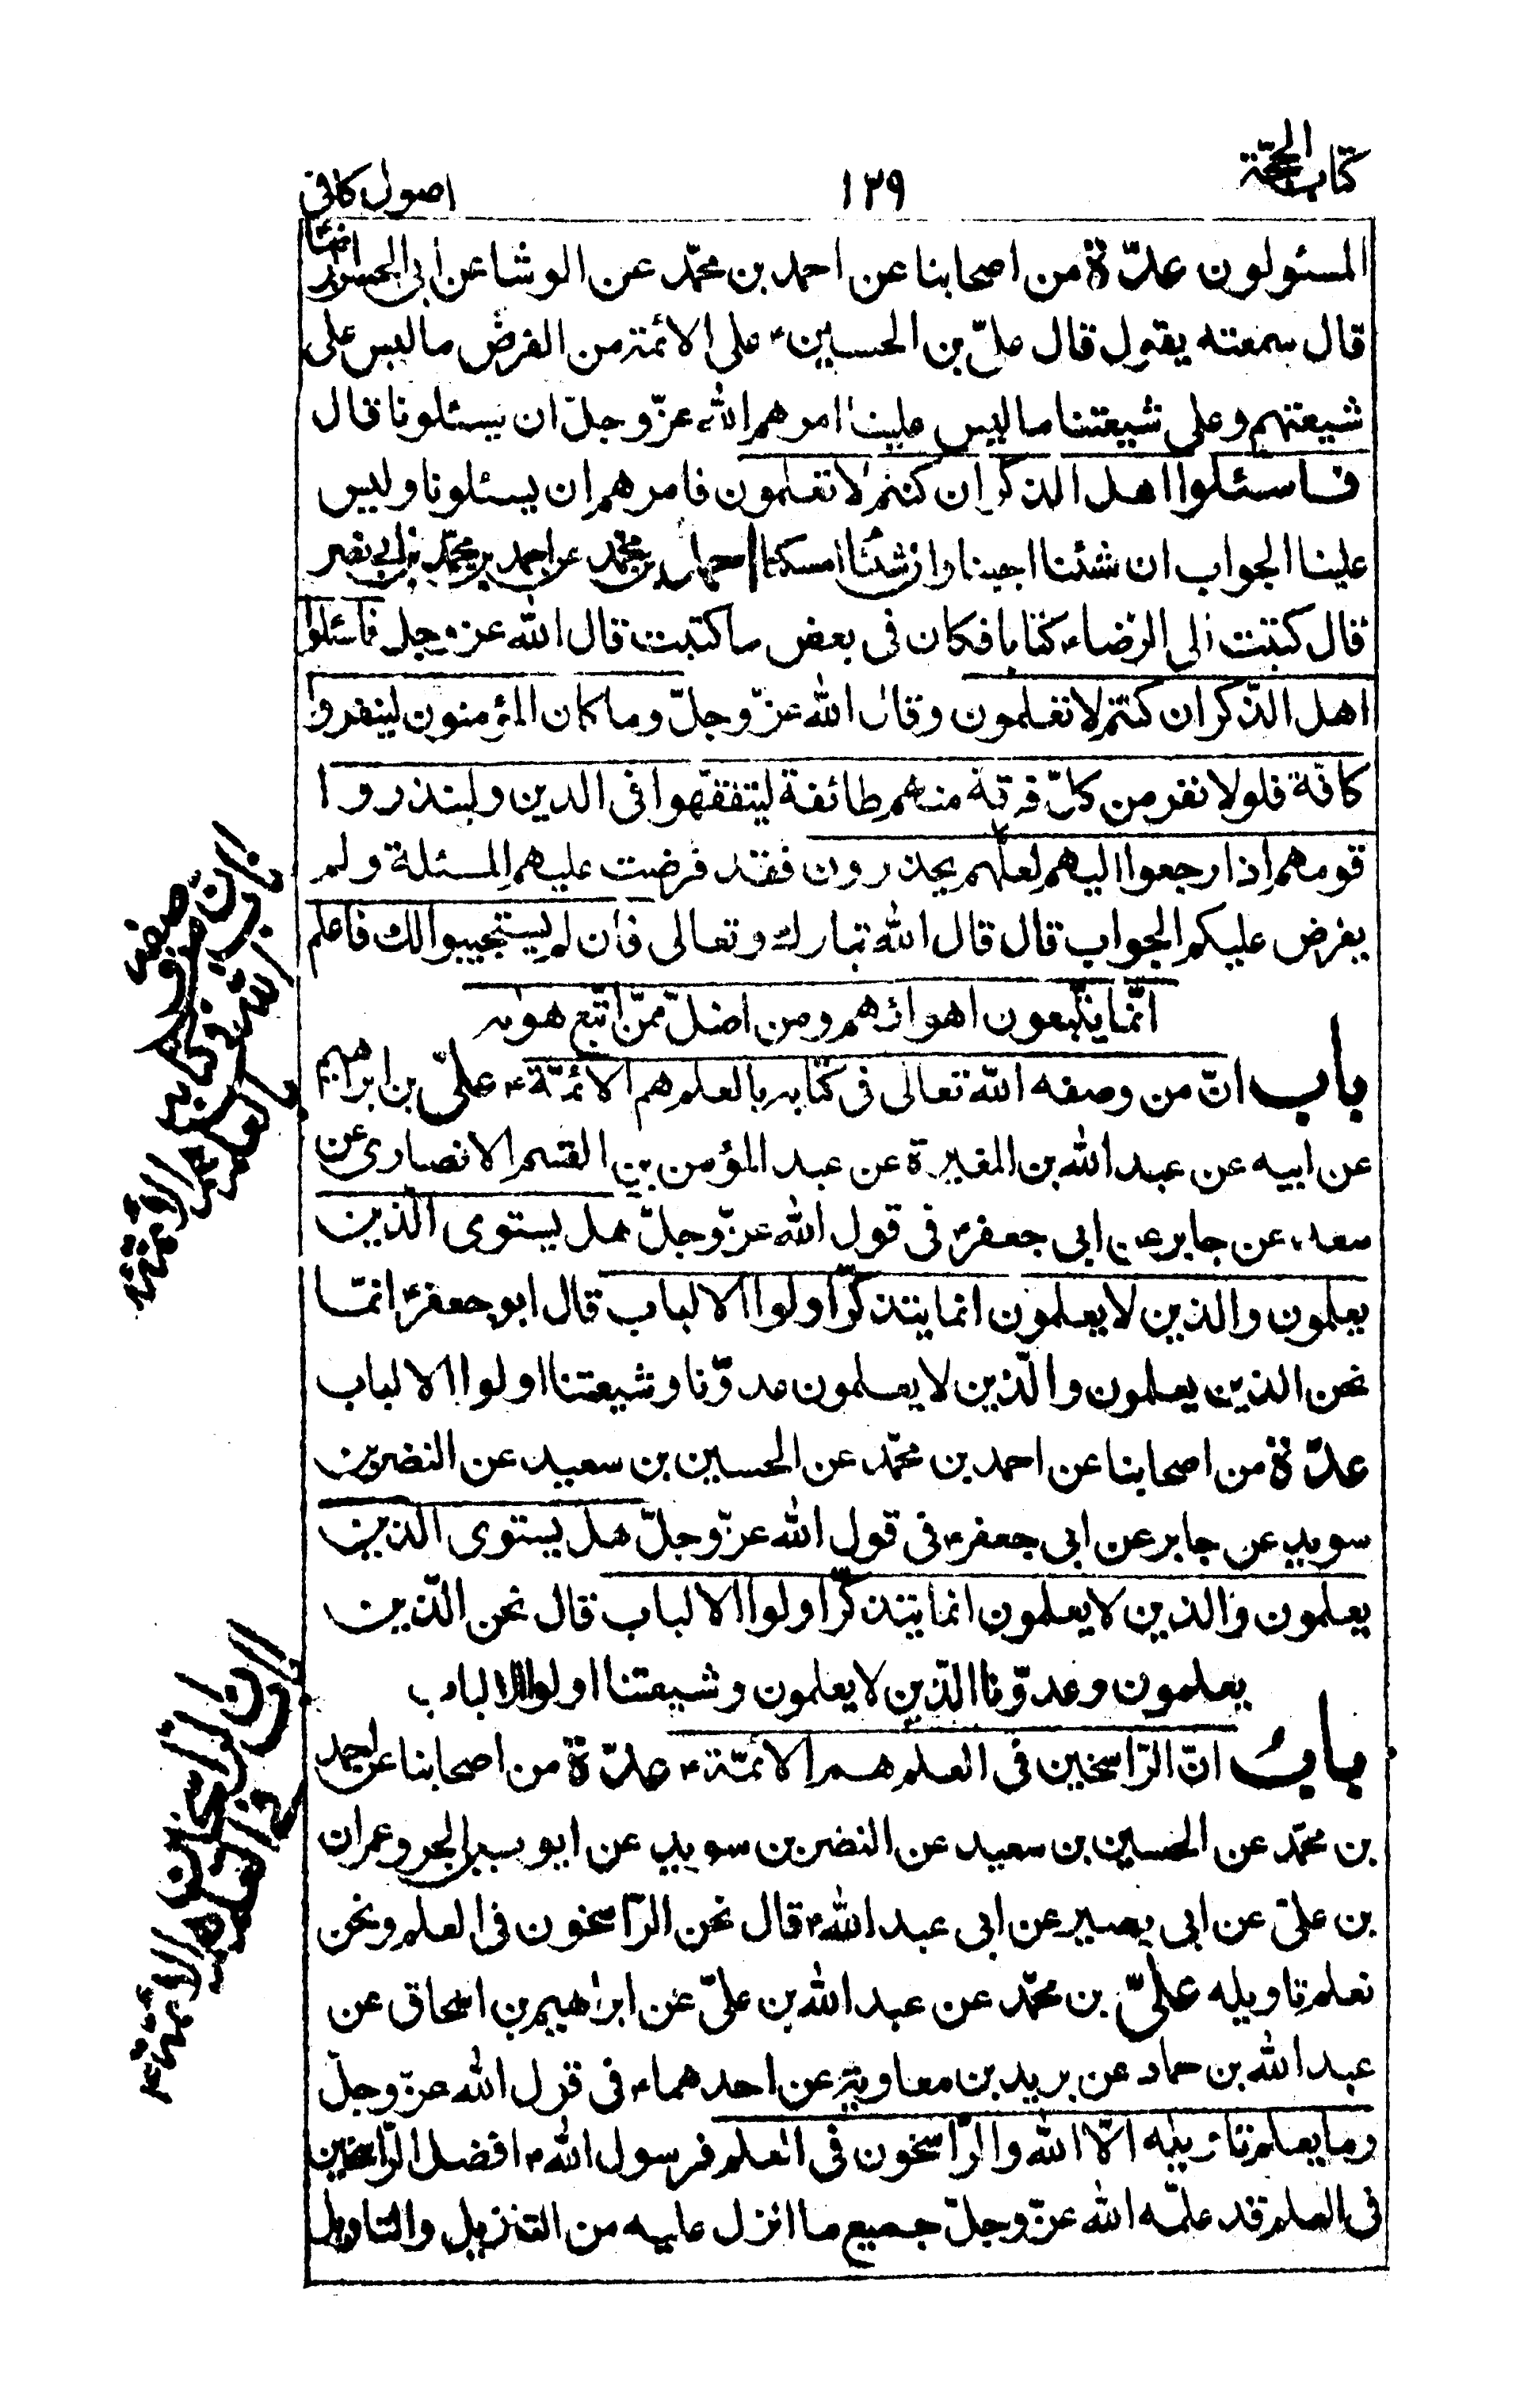 كتاب الحجّة
١٢٩
اصول كافى
المسئولون عدّة من اصحابنا عن احمد بن محمّد عن الوشا عن ابى الحسن الرضا
قال سمعته يقول قال علىّ بن الحسين ع على الائمة من الفرض ما ليس على
شيعتهم وعلى شيعتنا ما ليس علينا امرهم الله عزّ وجلّ ان يسئلونا قال
فاسئلوا اهل الذكر ان كنتم لا تعلمون فامرهم ان يسئلونا وليس
علينا الجواب ان شئنا اجبنا وان شئنا امسكنا احمد بن محمّد عن احمد بن محمّد بن ابى نصر
قال كتبت الى الرضا ع كتابا فكان فى بعض ما كتبت قال الله عز وجل فاسئلوا
اهل الذّكر ان كنتم لا تعلمون وقال الله عزّ وجلّ وما كان المؤمنون لينفروا
كافّة فلولا نفر من كلّ فرقة منهم طائفة ليتفقّهوا فى الدين ولينذروا
قومهم اذا رجعوا اليهم لعلّهم يحذرون فقد فرضت عليهم المسئلة ولم
يفرض عليكم الجواب قال قال الله تبارك وتعالى فان لم يستجيبوا لك فاعلم
انّما يتّبعون اهوائهم ومن اضلّ ممّن اتّبع هوٰيه
باب انّ من وصفه الله تعالى فى كتابه بالعلم هم الائمّة ع علىّ بن ابراهيم
عن ابيه عن عبد الله بن المغيرة عن عبد المؤمن بن القسم الانصارى عن
سعد عن جابر عن ابى جعفر ع فى قول الله عزّ وجلّ هل يستوى الّذين
يعلمون والذين لا يعلمون انما يتذكّر اولوا الالباب قال ابو جعفر ع انمّا
نحن الذين يعلمون والّذين لا يعلمون عدوّنا وشيعتنا اولوا الالباب
عدّة من اصحابنا عن احمد بن محمّد عن الحسين بن سعيد عن النضر بن
سويد عن جابر عن ابى جعفر ع فى قول الله عزّ وجلّ هل يستوى الذين
يعلمون والذين لا يعلمون انما يتذكّر اولوا الالباب قال نحن الّذين
يعلمون وعدوّنا الّذين لا يعلمون وشيعتنا اولوا الالباب
باب انّ الرّاسخين فى العلم هم الائمّة ع عدّة من اصحابنا عن احمد
بن محمّد عن الحسين بن سعيد عن النضر بن سويد عن ايوب بن الحر وعمران
بن علىّ عن ابى بصير عن ابى عبد الله ع قال نحن الرّاسخون فى العلم ونحن
نعلم تاويله علىّ بن محمّد عن عبد الله بن علىّ عن ابراهيم بن اسحاق عن
عبد الله بن حماد عن بريد بن معاوية عن احدهما ع فى قول الله عزّ وجلّ
وما يعلم تاويله الّا الله والرّاسخون فى العلم فرسول الله ص افضل الرّاسخين
فى العلم قد علّمه الله عزّ وجلّ جميع ما انزل عليه من التنزيل والتاويل
باب انّ من وصفه
الله فى كتابه
بالعلم هم الائمّة
باب انّ الراسخين
فى العلم هم الائمّة ع